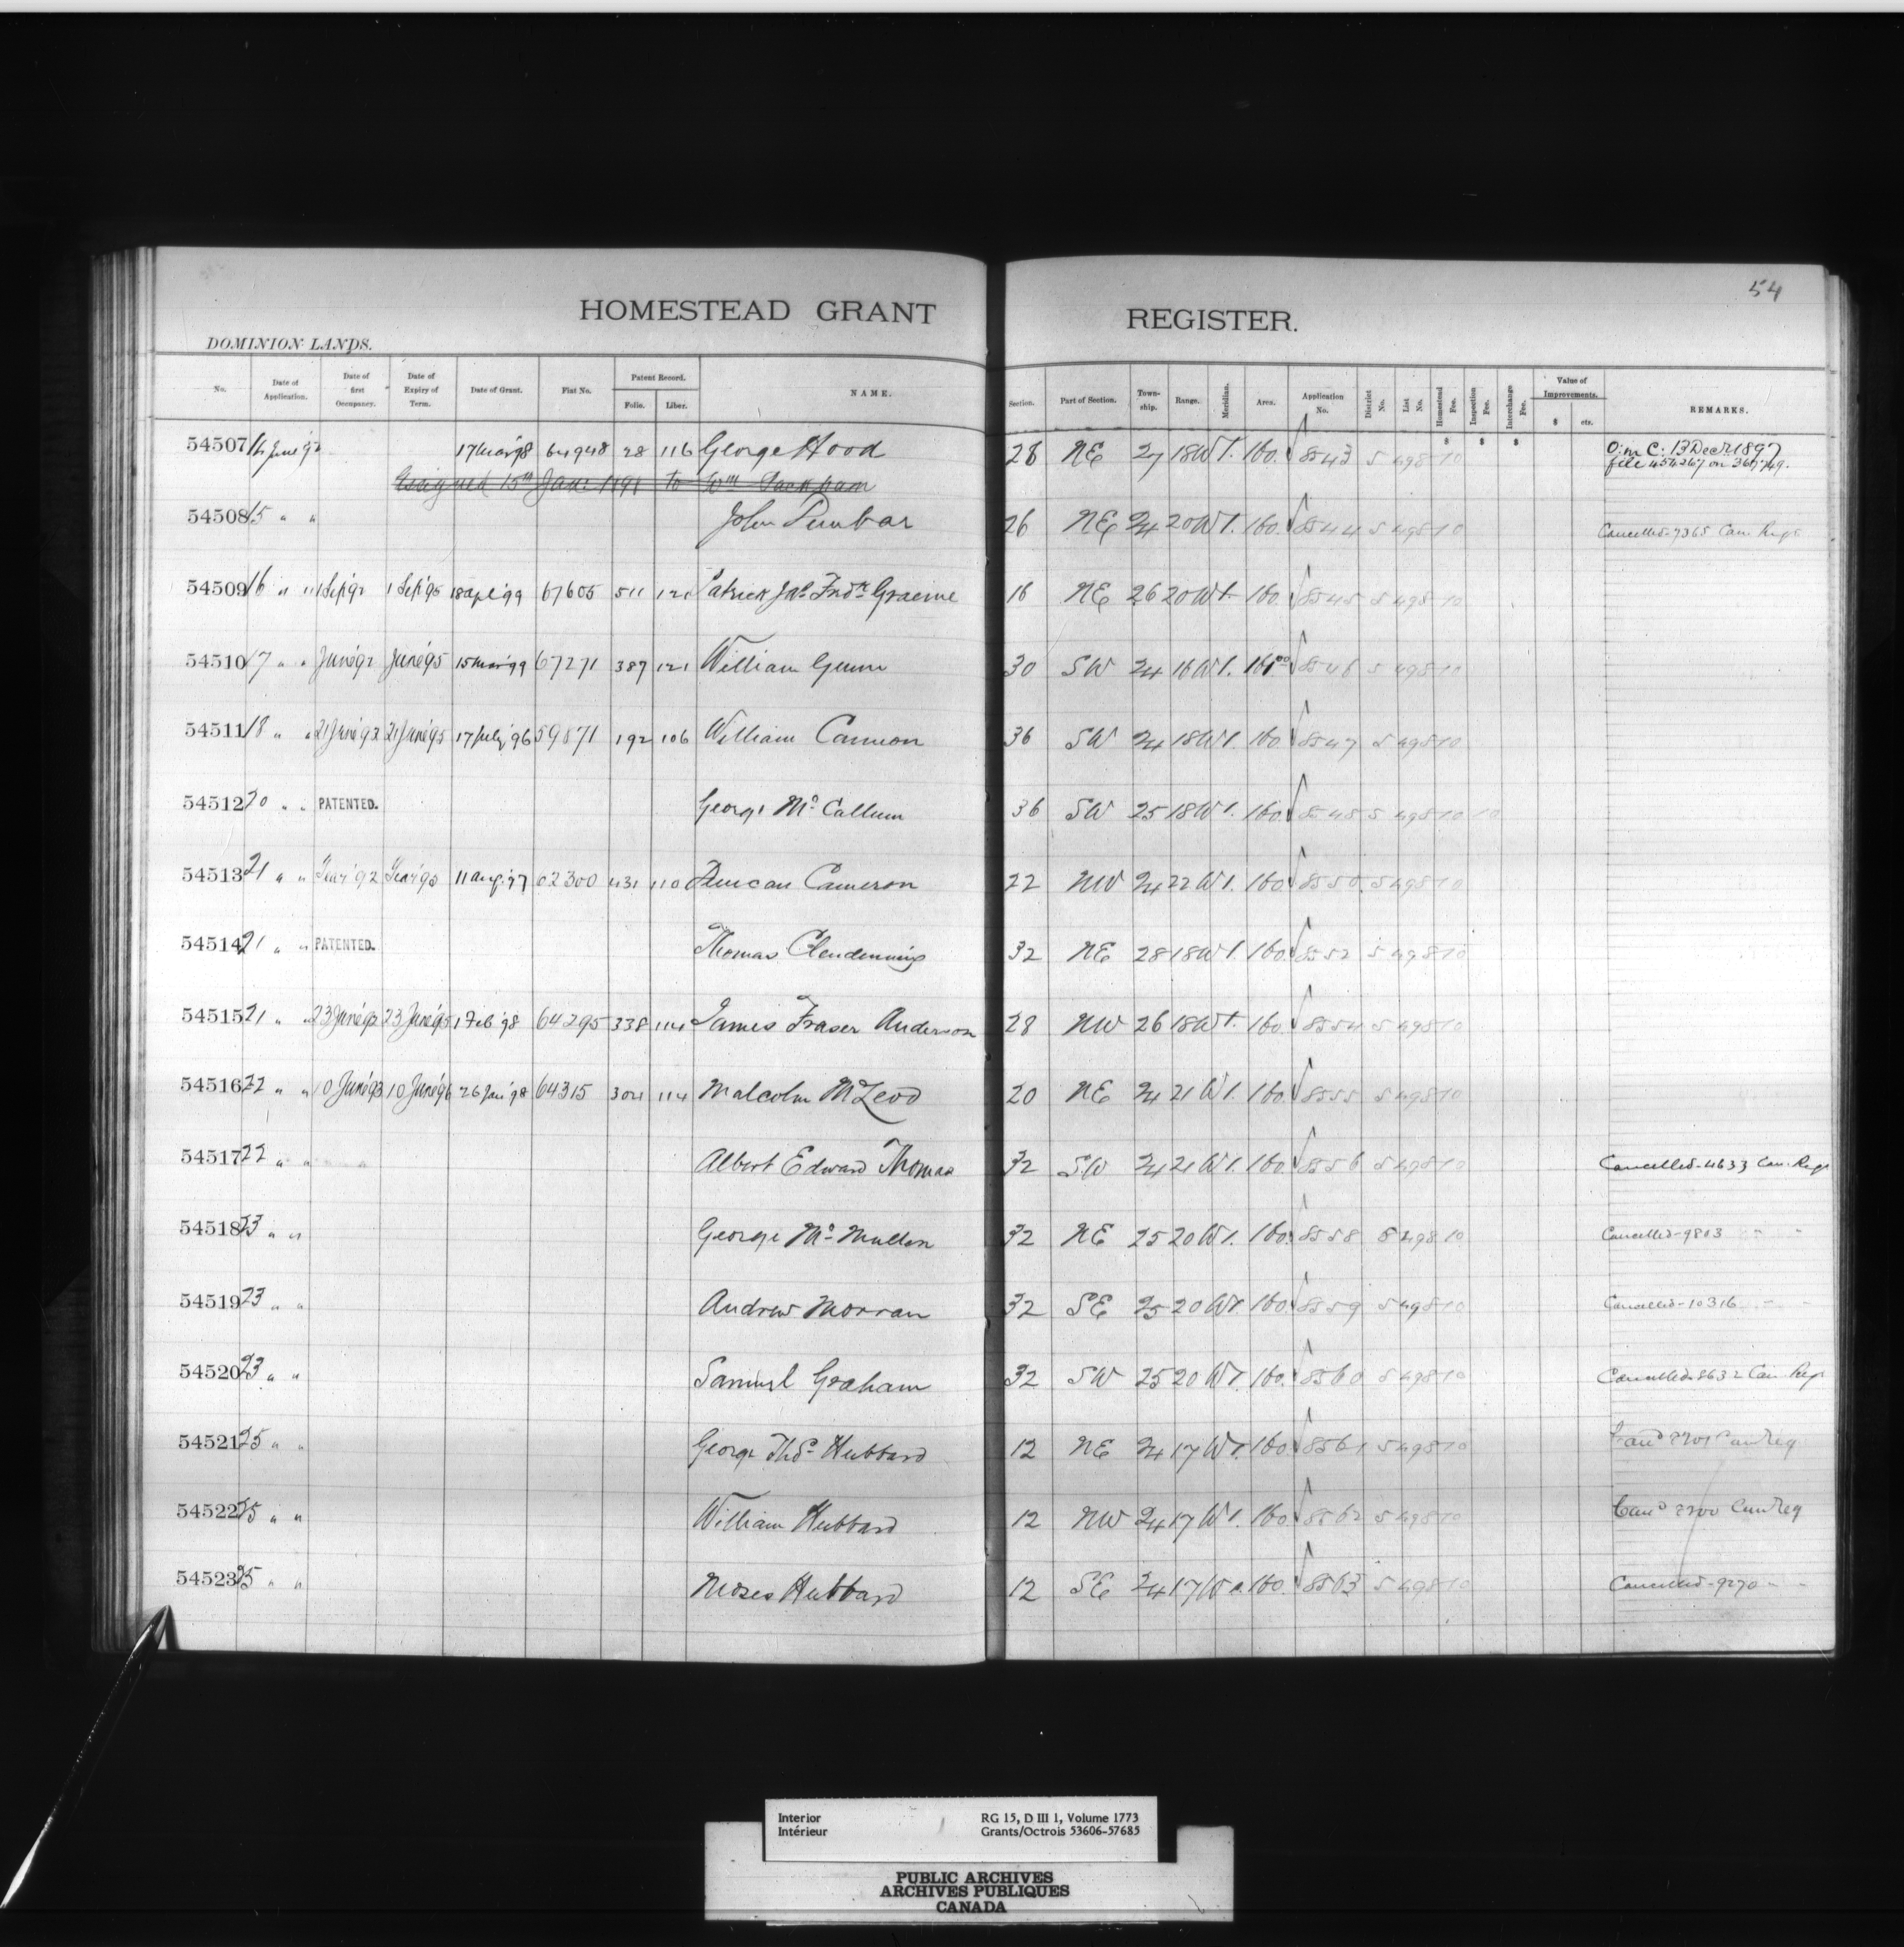 54
HOMESTEAD GRANT REGISTER.
DOMINION LANDS.
No. Date of Application. Date of first Occupancy. Date of Expiry of Term. Date of Grant. Fiat No. Patent Record. Folio. Liber. NAME. Section. Part of Section. Township. Range. Meridian. Area. Application No. District No. List No. Homestead Fee. Inspection Fee. Interchange Fee. Value of Improvements. $ cts. REMARKS.
54507 14 June '92 17 Mar '98 64948 28 116 George Hood 28 NE 27 18 W1. 160. 8543 5 498 10 O. in C. 13 Decr 1897
file 454267 on 360749.
Assigned 15th Jan: 1891 to Wm Packham
54508 15 " " John Dunbar 26 NE 24 20 W1. 160. 8544 5 498 10 Cancelled-7365 Can. Regr
54509 16 " " 1 Sep '92 1 Sep '95 18 Apl '99 67605 511 121 Patrick Jas Fredk Graeme 16 NE 26 20 W1. 160 8545 5 498 10
54510 17 " " June '92 June '95 15 Mar '99 67271 387 121 William Gunn 30 SW 24 16 W1. 161.00 8546 5 498 10
54511 18 " " 21 June '92 21 June '95 17 July '96 59871 192 106 William Cannon 36 SW 24 18 W1. 160 8547 5 498 10
54512 20 " " PATENTED. George Mc Callum 36 SW 25 18 W1. 160. 8548 5 498 10 10
54513 21 " " 11 Aug. '97 62300 431 110 Duncan Cameron 22 NW 24 22 W1. 160 8550 5 498 10
54514 21 " " PATENTED. Thomas Clendenning 32 NE 28 18 W1. 160. 8552 5 498 10
54515 21 " " 23 June '92 23 June '95 1 Feb '98 64295 338 114 James Fraser Anderson 28 NW 26 18 W1. 160. 8554 5 498 10
54516 22 " " 10 June '93 10 June '96 26 Jan '98 64315 304 114 Malcolm McLeod 20 NE 24 21 W1. 160. 8555 5 498 10
54517 22 " " Albert Edward Thomas 32 SW 24 21 W1. 160 8556 5 498 10 Cancelled-4633 Can. Regr
54518 23 " " George Mc Mullen 32 NE 25 20 W1. 160. 8558 5 498 10 Cancelled-9803 " "
54519 23 " " Andrew Morran 32 SE 25 20 W1 160. 8559 5 498 10 Cancelled-10316 " "
54520 23 " " Samuel Graham 32 SW 25 20 W1. 160. 8560 5 498 10 Cancelled-8632 Can. Regr
54521 25 " " George Thos Hubbard 12 NE 24 17 W1. 160 8561 5 498 10 Cancd 7701 Can Reg
54522 25 " " William Hubbard 12 NW 24 17 W1. 160 8562 5 498 10 Cancd 7700 Can Reg
54523 25 " " Moses Hubbard 12 SE 24 17 W1. 160. 8563 5 498 10 Cancelled-9270 " "
Interior
Intérieur
RG 15, D III 1, Volume 1773
Grants/Octrois 53606-57685
PUBLIC ARCHIVES
ARCHIVES PUBLIQUES
CANADA